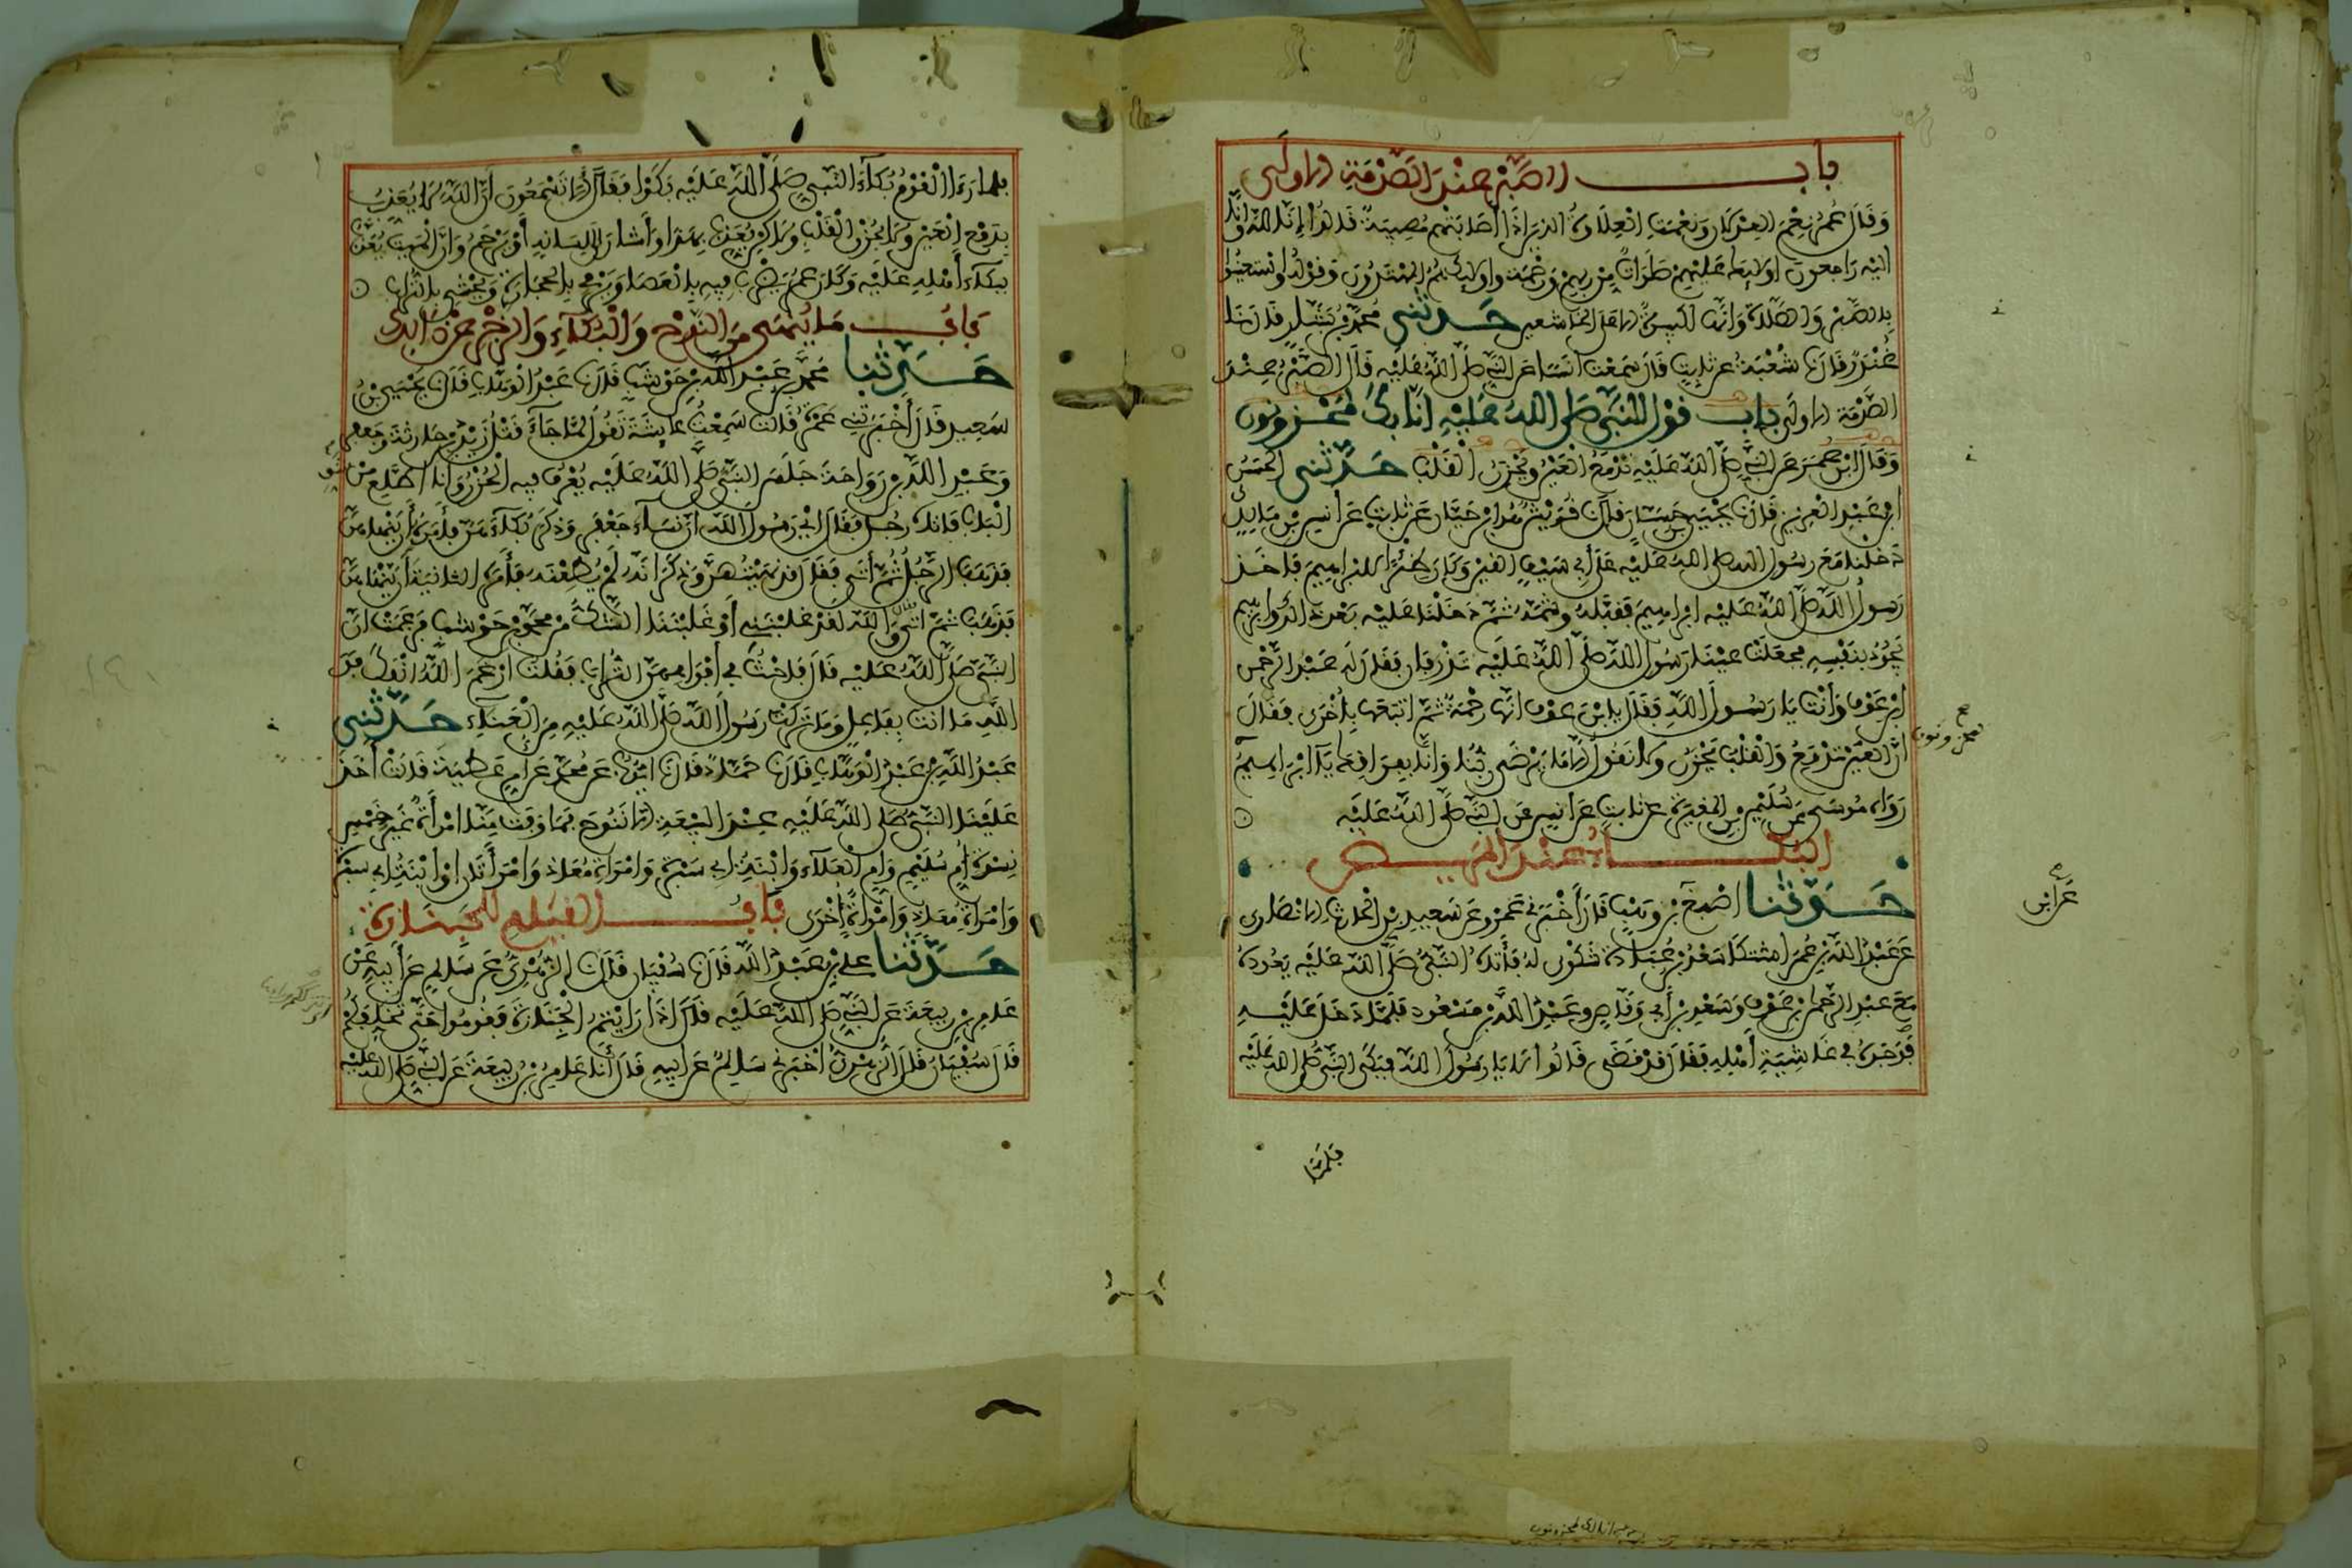 باب الصبر عند الصدمة الاولى
وقال عمر نعم العدلان ونعمت العلاوة الذين اذا اصابتهم مصيبة قالوا إنا لله وإنا
اليه راجعون اولايك عليهم صلوات من ربهم ورحمة واولايك هم المهتدون وقوله واستعينوا
بالصبر والصلاة وانها لكبيرة الا على الخاشعين حدثني محمد بن بشار قال نا
غندر قال نا شعبة عن ثابت قال سمعت انسا عن النبي صلى الله عليه قال الصبر عند
الصدمة الاولى باب قول النبي صلى الله عليه انا بك لمحزونون
وقال ابن عمر عن النبي صلى الله عليه تدمع العين ويحزن القلب حدثني الحسن
ابن عبد العزيز قال نا يحيى بن حسان قال نا قريش هو ابن حيان عن ثابت عن أنس بن مالك
دخلنا مع رسول الله صلى الله عليه على أبي سيف القين وكان ظئرا لابراهيم فاخذ
رسول الله صلى الله عليه ابراهيم فقبله وشمه ثم دخلنا عليه بعد ذلك وابراهيم
يجود بنفسه فجعلت عينا رسول الله صلى الله عليه تذرفان فقال له عبد الرحمن
ابن عوف وأنت يا رسول الله فقال يابن عوف انها رحمة ثم اتبعها بأخرى فقال
ان العين تدمع والقلب يحزن ولا نقول الا ما يرضى ربنا وانا بفراقك يا ابراهيم
لمحزونون
رواه موسى عن سليمن بن المغيرة عن ثابت عن انس عن النبي صلى الله عليه
البكاء عند المريض
حدثنا اصبغ بن وهب قال أخبرني عمرو عن سعيد بن الحارث الانصاري
عن عبد الله بن عمر اشتكا سعد بن عبادة شكوى له فأتاه النبي صلى الله عليه يعوده
مع عبد الرحمان بن عوف وسعد بن أبي وقاص وعبد الله بن مسعود فلما دخل عليه
فوجده في غاشية أهله فقال قد قضى قالوا لا يا رسول الله فبكى النبي صلى الله عليه
عن ابن
فلما
فلما رءا القوم بكاء النبي صلى الله عليه بكوا فقال ألا تسمعون ان الله لا يعذب
بدمع العين ولا بحزن القلب ولاكن يعذب بهذا وأشار إلى لسانه أو يرحم وان الميت يعذب
ببكاء أهله عليه وكان عمر يضرب فيه بالعصا ويرمي بالحجارة ويحثي بالتراب
باب ما ينهى من النوح والبكاء والزجر عن ذلك
حدثنا محمد بن عبد الله بن حوشب قال نا عبد الوهاب قال نا يحيى بن
سعيد قال أخبرتني عمرة قالت سمعت عايشة تقول لما جاء قتل زيد بن حارثة وجعفر
وعبد الله بن رواحة جلس النبي صلى الله عليه يعرف فيه الحزن وانا اطلع من شق
الباب فاتاه رجل فقال اي رسول الله ان نساء جعفر وذكر بكاءهن فأمره أن ينهاهن
فذهب الرجل ثم أتى فقال قد نهيتهن وذكر انه لم يطعنه فأمره الثانية أن ينهاهن
فذهب ثم اتى والله لقد غلبنني أو غلبننا الشك من محمد بن حوشب فزعمت ان
النبي صلى الله عليه قال فاحث في أفواههن التراب فقلت ارغم الله انفك فو
الله ما انت بفاعل وما تركت رسول الله صلى الله عليه من العناء حدثني
عبد الله بن عبد الوهاب قال نا حماد قال نا ايوب عن محمد عن أم عطية قالت أخذ
علينا النبي صلى الله عليه عند البيعة الا ننوح فما وفت منا امرأة غير خمس
نسوة أم سليم وأم العلاء وابنة ابي سبرة وامرأة معاذ وامرأتان او ابنة ابي سبرة
وامرأة معاذ وامرأة أخرى باب القيام للجنازة
حدثنا علي بن عبد الله قال نا سفيان قال نا الزهري عن سالم عن أبيه عن
عامر بن ربيعة عن النبي صلى الله عليه قال اذا رايتم الجنازة فقوموا حتى تخلفكم
قال سفيان قال الزهري أخبرني سالم عن أبيه قال أنا عامر بن ربيعة عن النبي صلى الله عليه